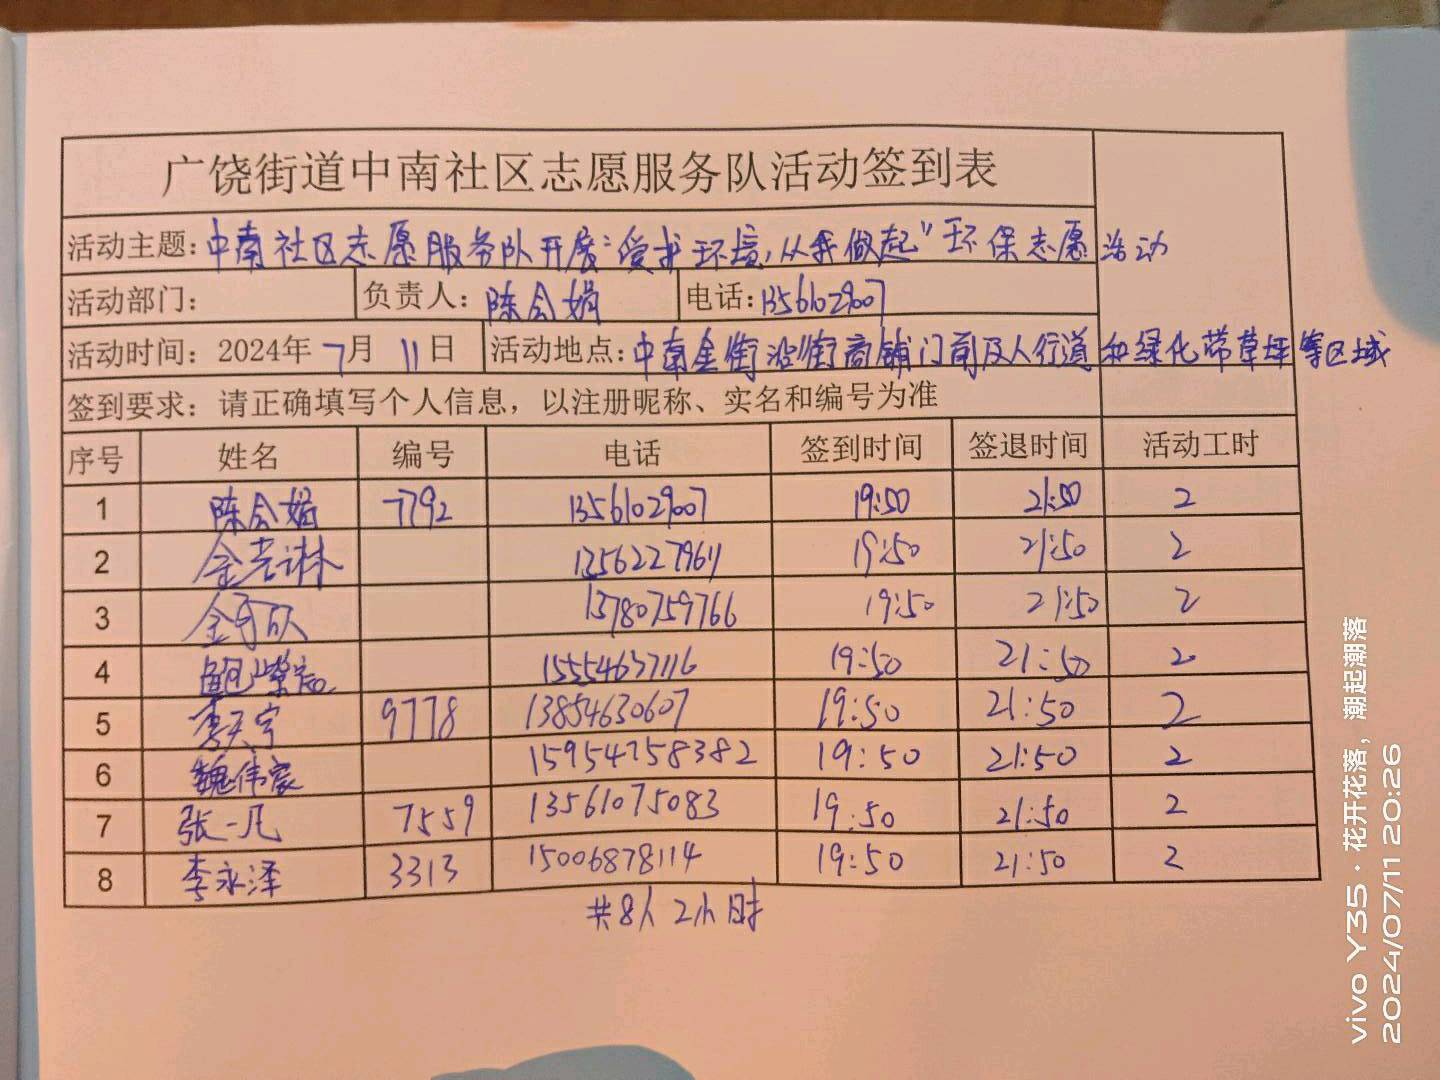 广饶街道中南社区志愿服务队活动签到表
活动主题: 中南社区志愿服务队开展“爱护环境,从我做起”环保志愿活动
活动部门: 负责人: 陈会娟 电话: 13561029007
活动时间: 2024年 7月 11日 活动地点: 中南金街沿街商铺门前及人行道和绿化带草坪等区域
签到要求: 请正确填写个人信息, 以注册昵称、实名和编号为准
序号 姓名 编号 电话 签到时间 签退时间 活动工时
1 陈会娟 7792 13561029007 19:50 21:50 2
2 13562279611 19:50 21:50 2
3 13780759766 19:50 21:50 2
4 15554637116 19:50 21:50 2
5 李天宇 9778 13854630607 19:50 21:50 2
6 魏伟豪 15954758382 19:50 21:50 2
7 张一凡 7559 13561075083 19:50 21:50 2
8 李永泽 3313 15006878114 19:50 21:50 2
共8人 2小时
vivo Y35 · 花开花落，潮起潮落
2024/07/11 20:26